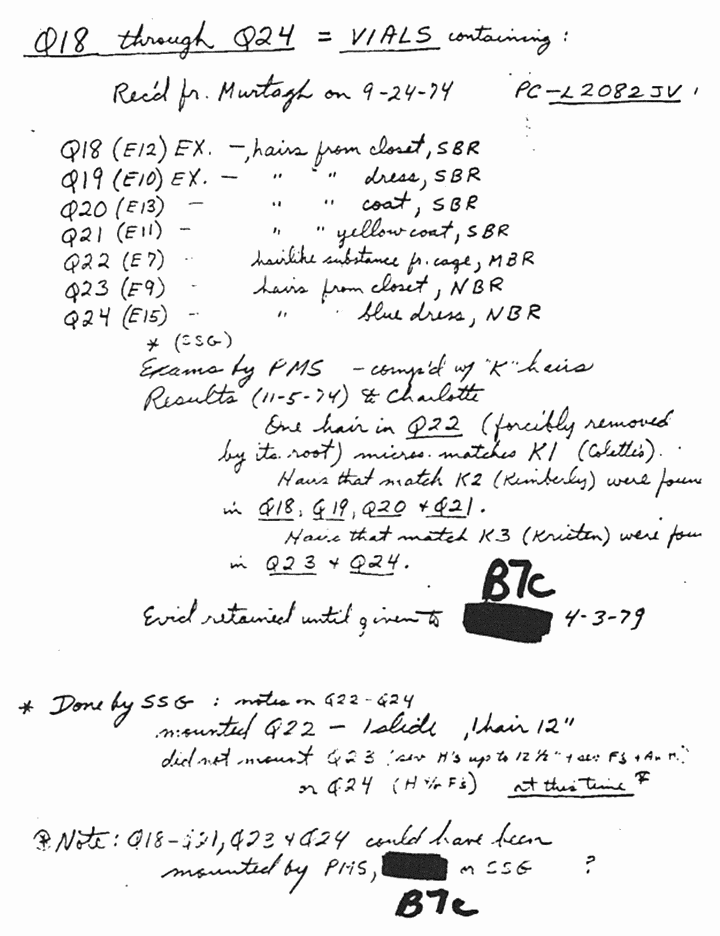 Q18 through Q24 = VIALS containing:
Rec'd fr. Murtagh on 9-24-74 PC-L2082 JV
Q18 (E12) EX. -, hairs from closet, SBR
Q19 (E10) EX. - " " dress, SBR
Q20 (E13) - " " coat, SBR
Q21 (E11) - " " yellow coat, SBR
Q22 (E7) - hairlike substance fr. cage, MBR
Q23 (E9) - hairs from closet, NBR
Q24 (E15) - " blue dress, NBR
* (SSG)
Exams by PMS - comp'd w/ "K" hairs
Results (11-5-74) to Charlotte
One hair in Q22 (forcibly removed
by its root) micros. matches K1 (Colette's).
Hairs that match K2 (Kimberly) were foun
in Q18, Q19, Q20 + Q21.
Hairs that match K3 (Kristen) were foun
in Q23 + Q24.
B7c
Evid retained until given to 4-3-79
* Done by SSG: notes on Q22-Q24
mounted Q22 - 1 slide, 1 hair 12"
did not mount Q23 (sev H's up to 12 1/2" + sev F's + An
or Q24 (H F's) at this time *
* Note: Q18-Q21, Q23 + Q24 could have been
mounted by PMS, or SSG ?
B7c